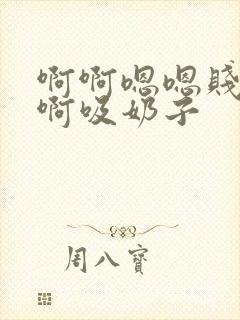 啊啊嗯嗯贱
啊吸奶子
周八寶